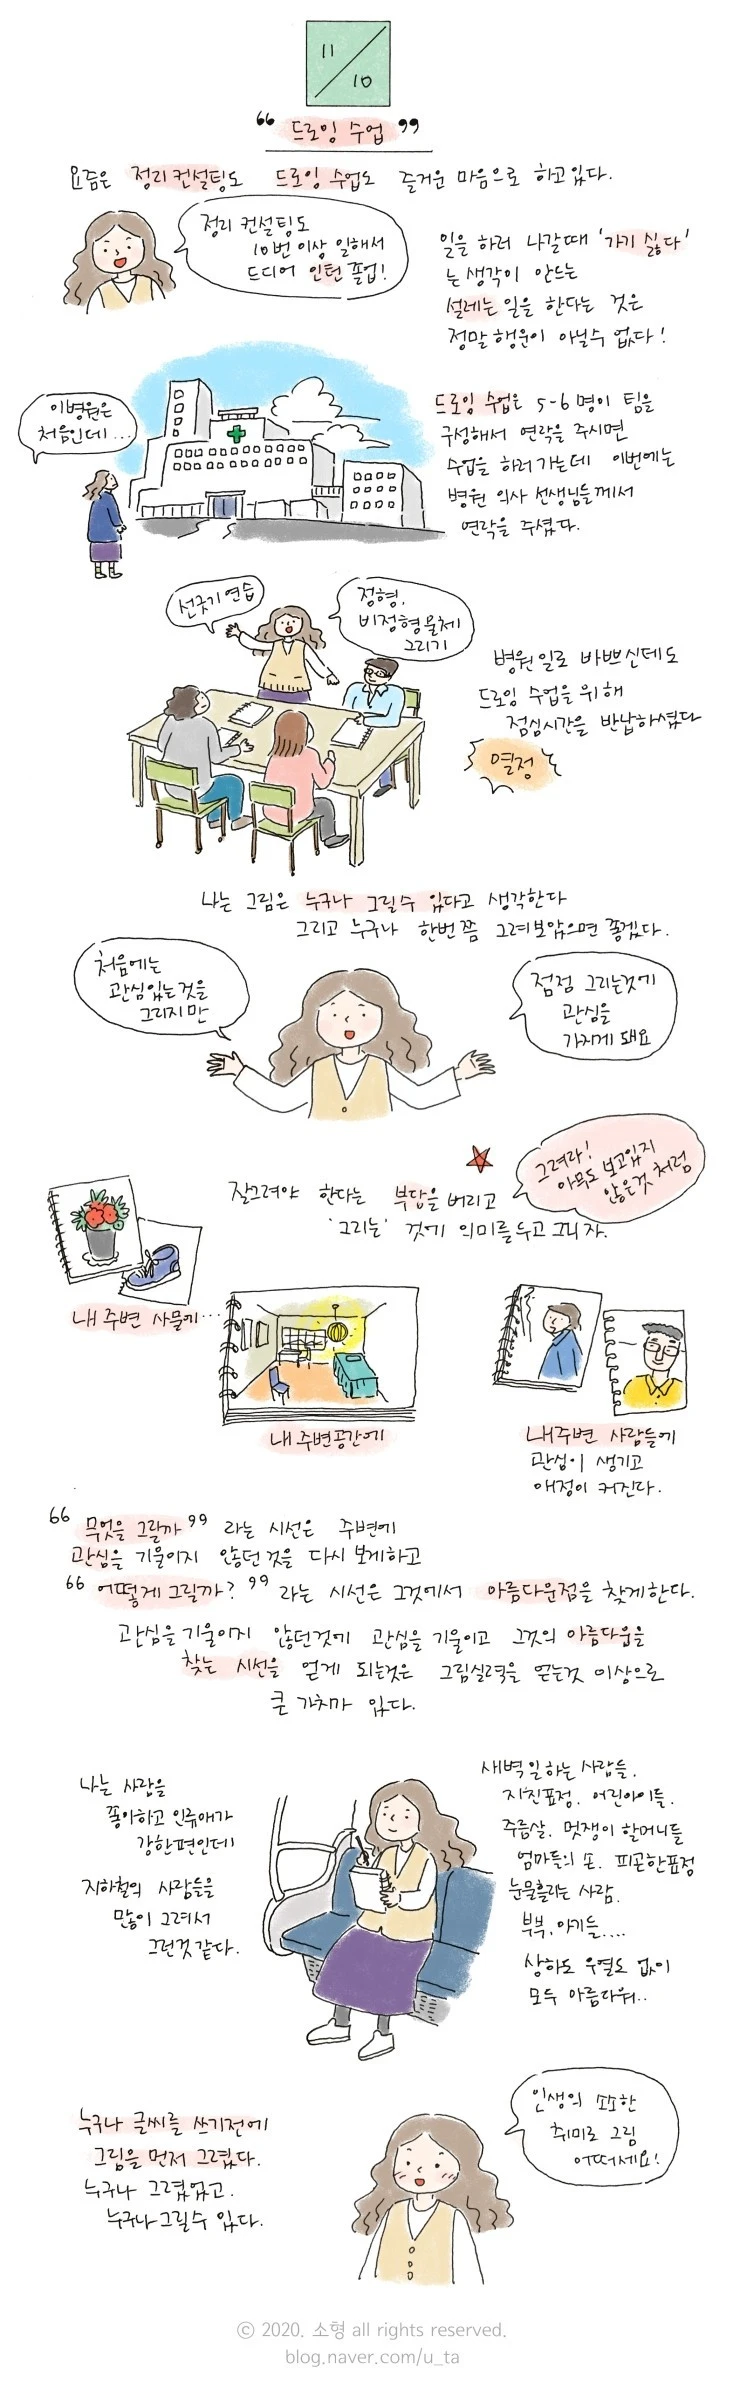 11
10
“ 드로잉 수업 ”
요즘은 정리 컨설팅도 드로잉 수업도 즐거운 마음으로 하고있다.
정리 컨설팅도
10번 이상 일해서
드디어 인턴 졸업!
일을 하러 나갈때 '가기 싫다'
는 생각이 안드는
설레는 일을 한다는 것은
정말 행운이 아닐수 없다!
이병원은
처음인데...
드로잉 수업은 5-6명이 팀을
구성해서 연락을 주시면
수업을 하러 가는데 이번에는
병원 의사 선생님들께서
연락을 주셨다.
선긋기 연습
정형,
비정형 물체
그리기
병원일로 바쁘신데도
드로잉 수업을 위해
점심시간을 반납하셨다
열정
나는 그림은 누구나 그릴수 있다고 생각한다
그리고 누구나 한번쯤 그려보았으면 좋겠다.
처음에는
관심있는것을
그리지만
점점 그리는것에
관심을
가지게 돼요
그려라!
아무도 보고있지
않은것 처럼
잘그려야 한다는 부담을 버리고
'그리는' 것에 의미를 두고 그리자.
내 주변 사물에...
내 주변공간에
내주변 사람들에
관심이 생기고
애정이 커진다.
“ 무엇을 그릴까 ” 라는 시선은 주변에
관심을 기울이지 않던것을 다시 보게하고
“ 어떻게 그릴까? ” 라는 시선은 그것에서 아름다운점을 찾게한다.
관심을 기울이지 않던것에 관심을 기울이고 그것의 아름다움을
찾는 시선을 얻게 되는것은 그림실력을 얻는것 이상으로
큰 가치가 있다.
나는 사람을
좋아하고 인류애가
강한편인데
지하철의 사람들을
많이 그려서
그런것 같다.
새벽 일하는 사람들.
지친표정. 어린아이들.
주름살. 멋쟁이 할머니들
엄마들의 손. 피곤한표정
눈물흘리는 사람.
부부, 아기들....
상하도 우열도 없이
모두 아름다워..
누구나 글씨를 쓰기전에
그림을 먼저 그렸다.
누구나 그렸었고.
누구나 그릴수 있다.
인생의 소소한
취미로 그림
어떠세요!
© 2020. 소형 all rights reserved.
blog.naver.com/u_ta